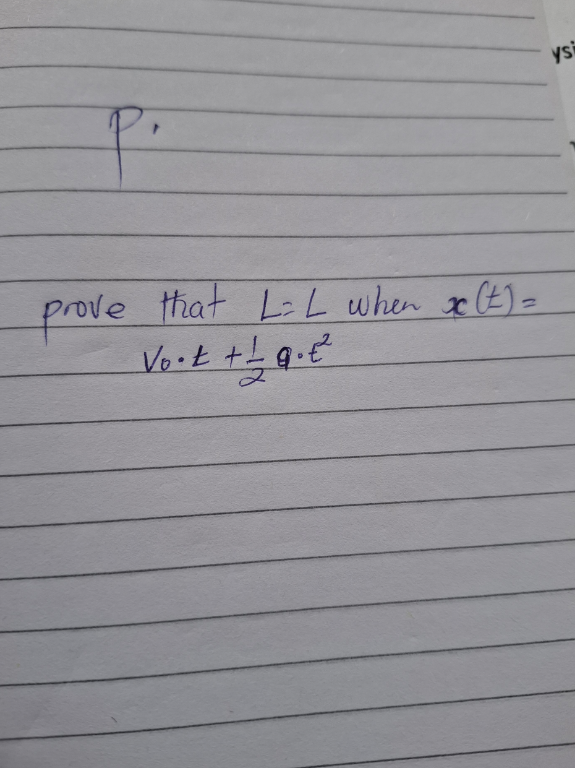 ysi
p.
prove that L=L when x(t)=
V₀·t + 1/2 a·t²